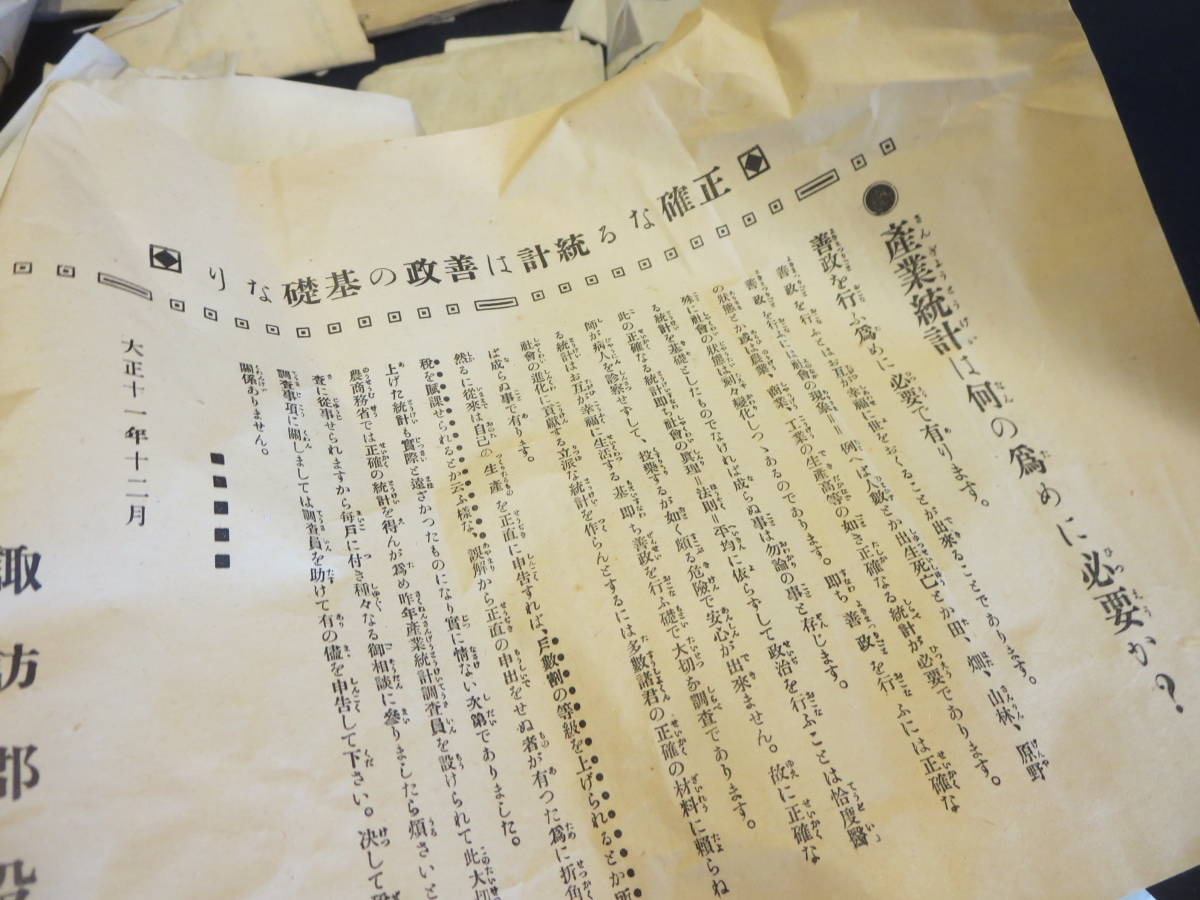 正確なる統計は善政の基礎なり
産業統計は何の為めに必要か?
善政を行ふ為めに必要で有ります。
善政を行ふとはお互が幸福に世をおくることが出來ることであります。
善政を行ふには社會の現象=例へば人數とか出生死亡とか田、畑、山林、原野
の狀態とか或は農業、商業、工業の生產高等の如き正確なる統計が必要であります。
殊に社會の狀態は刻々變化しつゝあるのであります。卽ち善政を行ふには正確な
る統計を基礎としたものでなければ成らぬ事は勿論の事と存じます。
此の正確なる統計卽ち社會の眞理=法則=平均に依らずして政治を行ふことは恰度醫
師が病人を診察せずして、投藥するが如く頗る危險で安心が出來ません。故に正確な
る統計はお互が幸福に生活する基卽ち善政を行ふ礎で大切な調査であります。
社會の進化に貢献する立派な統計を作らんとするには多數諸君の正確の材料に賴らね
ば成らぬ事で有ります。
然るに從來は自己の生產を正直に申告すれば、戶數割の等級を上げられるとか所
稅を賦課せられるとか云ふ樣な、誤解から正直の申出をせぬ者が有つた爲に折角
上げた統計も實際と遠ざかつたものになり實に情ない次第でありました。
農商務省では正確の統計を得んが爲め昨年產業統計調査員を設けられて此大切
查に從事せられますから每戶に付き種々なる御相談に參りましたら煩さいと
調査事項に關しましては調査員を助けて有の儘を申告して下さい。決して
關係ありません。
大正十一年十二月
諏訪郡役